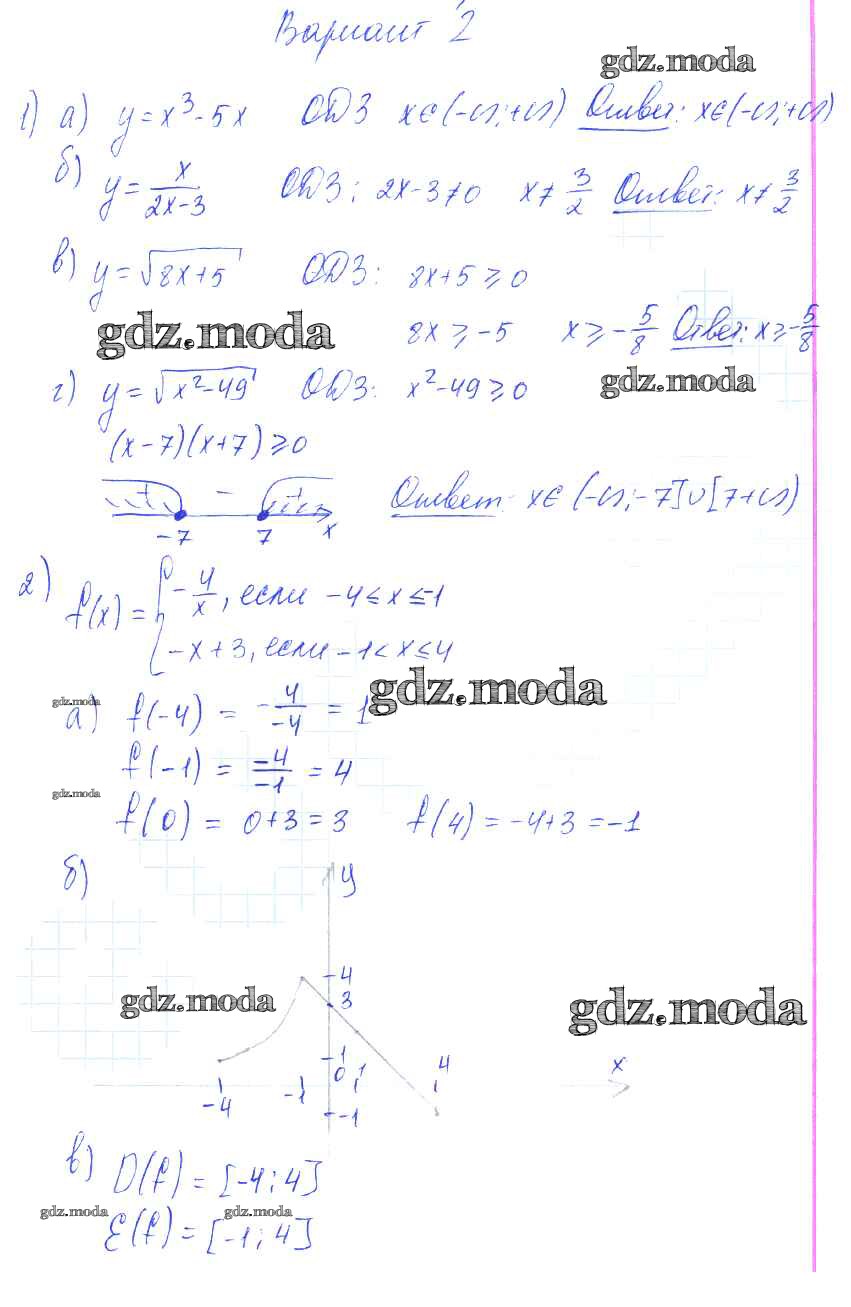 Вариант 2
gdz.moda
1) а) y = x³ - 5x ОДЗ x ∈ (-∞; +∞) Ответ: x ∈ (-∞; +∞)
б) y = x/(2x-3) ОДЗ: 2x-3≠0 x ≠ 3/2 Ответ: x ≠ 3/2
в) y = √(8x+5) ОДЗ: 8x+5 ⩾ 0
gdz.moda
8x ⩾ -5 x ⩾ -5/8 Ответ: x ⩾ -5/8
gdz.moda
г) y = √(x²-49) ОДЗ: x²-49 ⩾ 0
(x-7)(x+7) ⩾ 0
+ - + Ответ: x ∈ (-∞; -7] ∪ [7 +∞)
-7 7 x
2) f(x) = { -4/x, если -4 ≤ x ≤ -1
-x+3, если -1 < x ≤ 4
gdz.moda
gdz.moda
а) f(-4) = -4/-4 = 1
f(-1) = -4/-1 = 4
gdz.moda
f(0) = 0+3 = 3 f(4) = -4+3 = -1
б) y
4
3
gdz.moda
gdz.moda
1
0 1 4 x
-4 -1
-1
в) D(f) = [-4; 4]
gdz.moda gdz.moda
E(f) = [-1; 4]